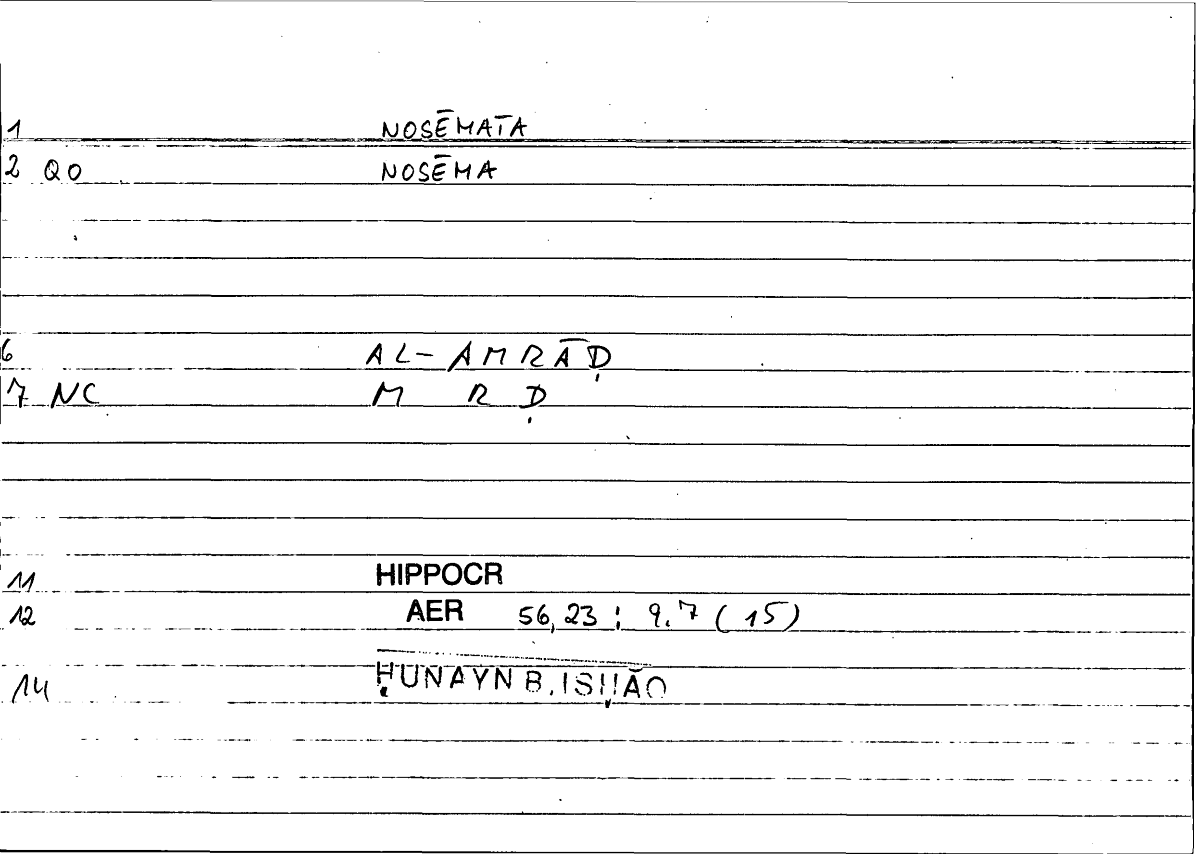 1 NOSĒMATA
2 QO NOSĒMA
6 AL-AMRĀḌ
7 NC M R Ḍ
11 HIPPOCR
12 AER 56,23 ; 9.7 (15)
14 ḤUNAYN B. ISḤĀQ